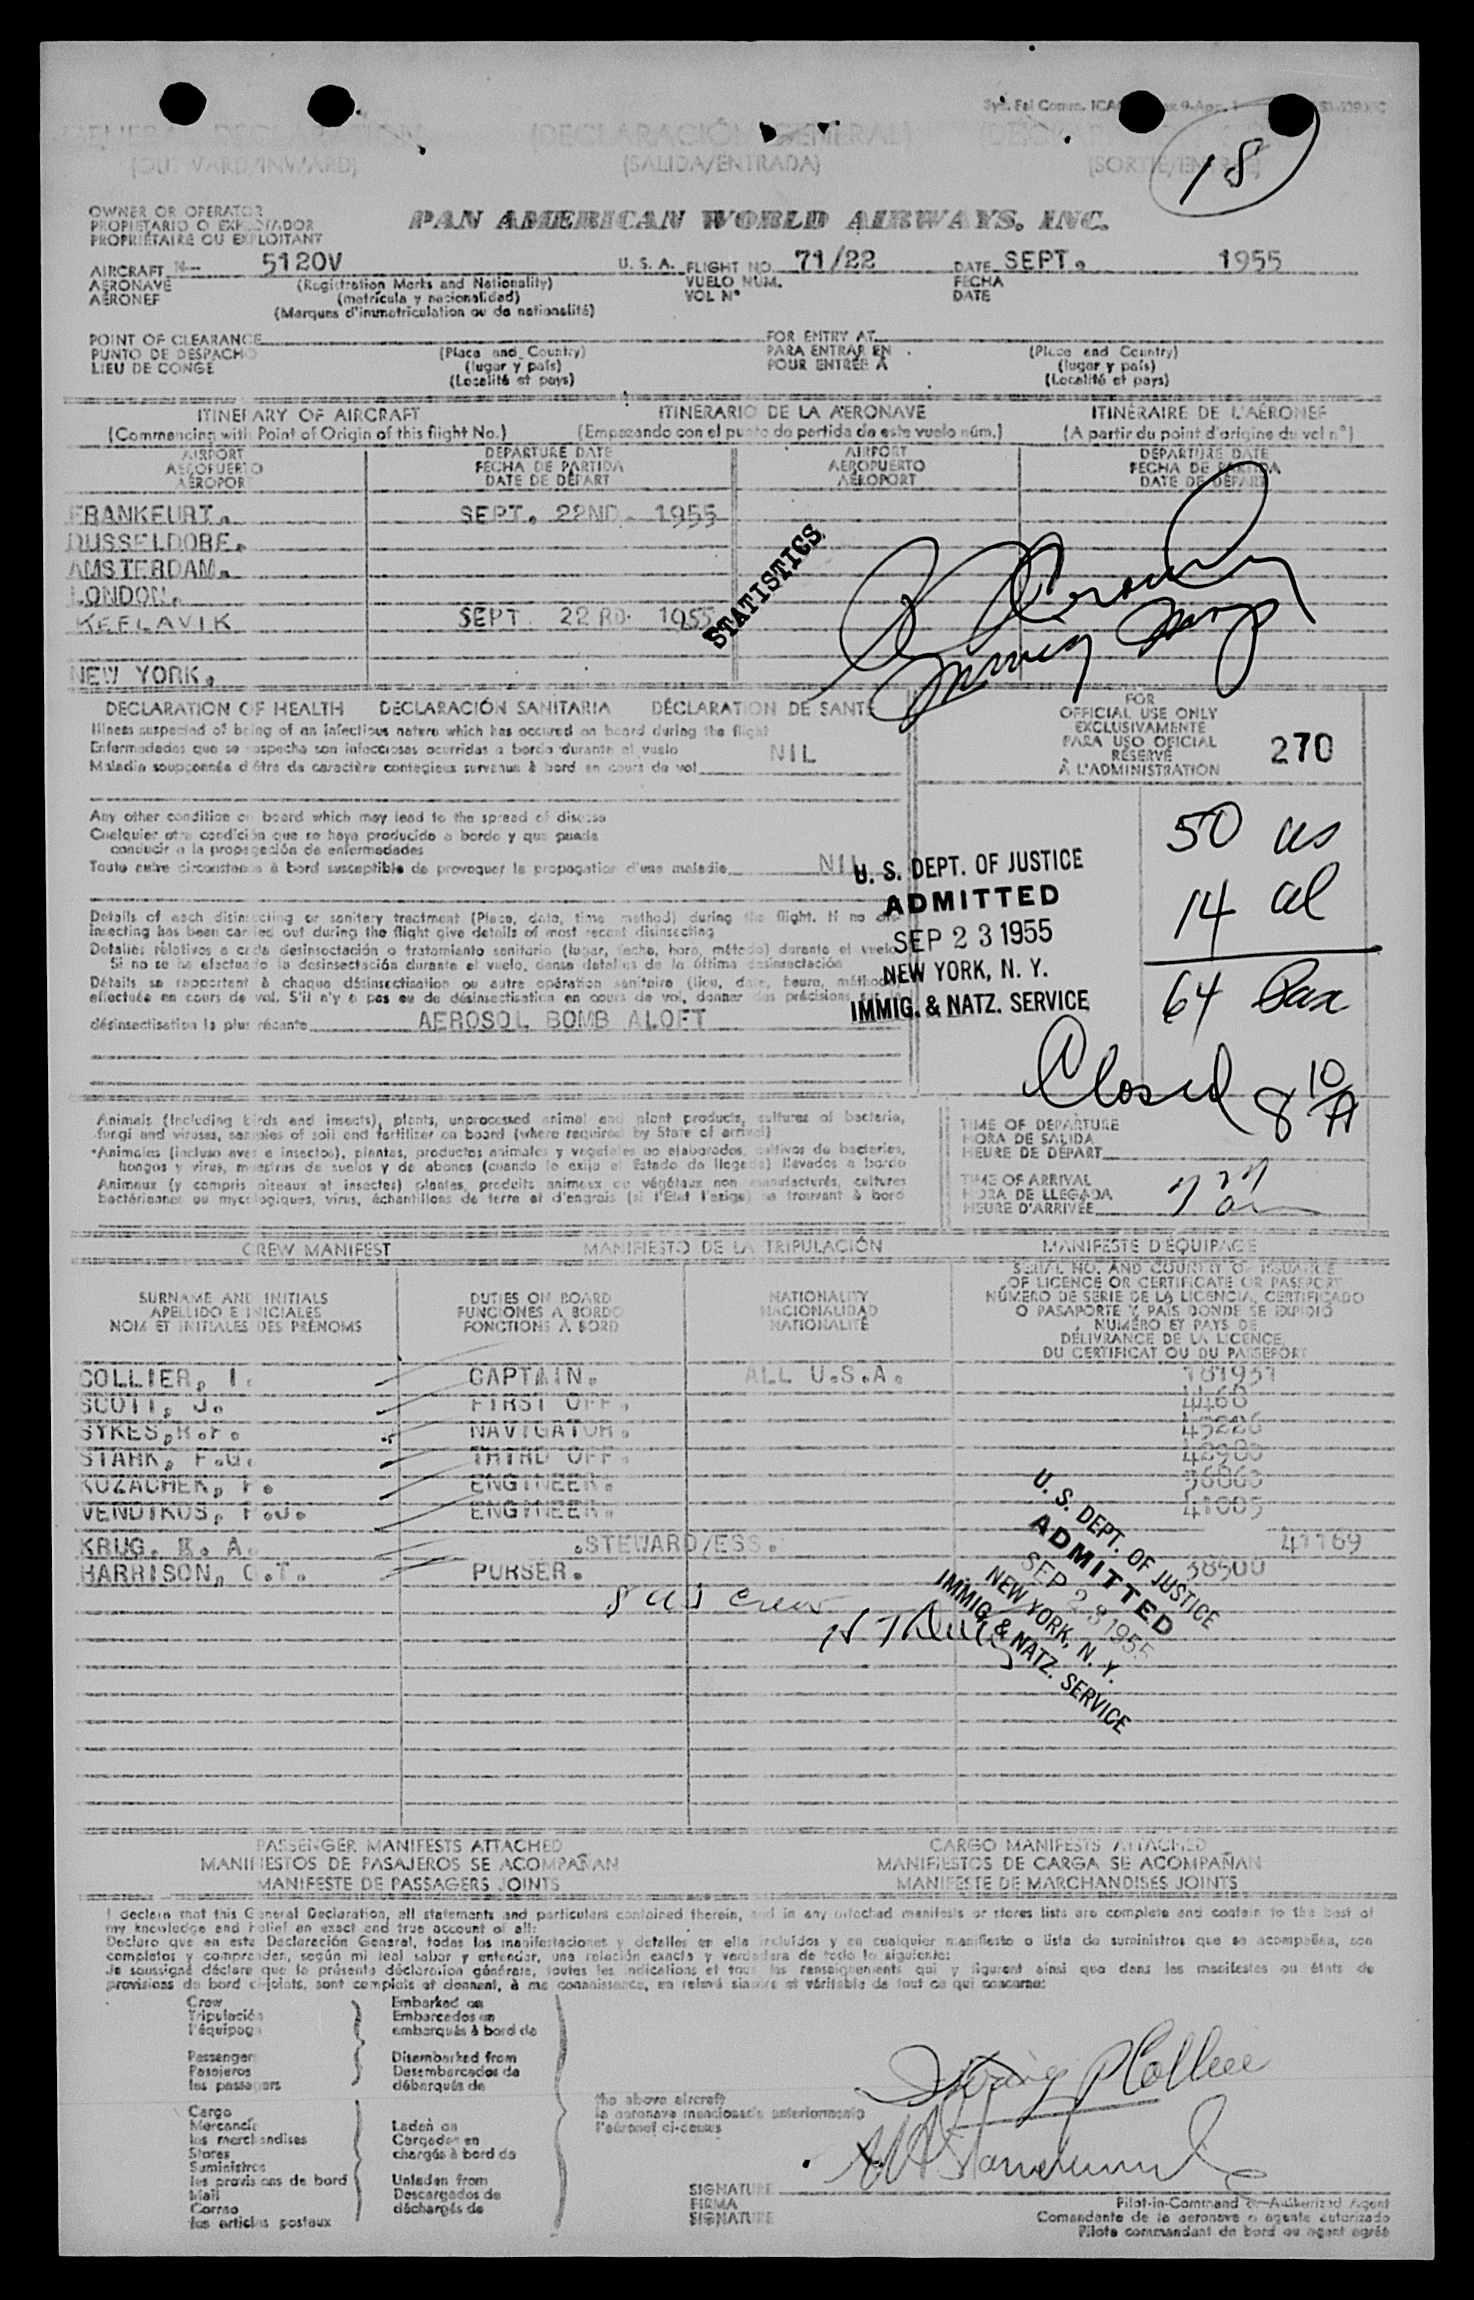 18
(DECLARACIÓN GENERAL)
(SALIDA/ENTRADA)
OWNER OR OPERATOR
PROPIETARIO O EXPLOTADOR
PROPRIÉTAIRE OU EXPLOITANT
PAN AMERICAN WORLD AIRWAYS, INC.
AIRCRAFT N- 5120V U. S. A. FLIGHT NO. 71/22 DATE SEPT. 1955
AERONAVE (Registration Marks and Nationality) VUELO NUM. FECHA
AÉRONEF (matrícula y nacionalidad) VOL N° DATE
(Marques d'immatriculation ou de nationalité)
POINT OF CLEARANCE FOR ENTRY AT
PUNTO DE DESPACHO (Place and Country) PARA ENTRAR EN (Place and Country)
LIEU DE CONGÉ (lugar y país) POUR ENTRÉE À (lugar y país)
(Localité et pays) (Localité et pays)
ITINERARY OF AIRCRAFT ITINERARIO DE LA AERONAVE ITINÉRAIRE DE L'AÉRONEF
(Commencing with Point of Origin of this flight No.) (Empezando con el punto de partida de este vuelo núm.) (A partir du point d'origine du vol n°)
AIRPORT DEPARTURE DATE AIRPORT DEPARTURE DATE
AEROPUERTO FECHA DE PARTIDA AEROPUERTO FECHA DE PARTIDA
AÉROPORT DATE DE DÉPART AÉROPORT DATE DE DÉPART
FRANKFURT. SEPT. 22ND. 1955
DUSSELDORF.
AMSTERDAM.
LONDON.
KEFLAVIK SEPT. 22RD. 1955
NEW YORK.
STATISTICS
DECLARATION OF HEALTH DECLARACIÓN SANITARIA DÉCLARATION DE SANTÉ
Illness suspected of being of an infectious nature which has occured on board during the flight
Enfermedades que se sospecha son infecciosas ocurridas a bordo durante el vuelo NIL
Maladie soupçonnée d'être de caractère contagieux survenue à bord en cours de vol
FOR
OFFICIAL USE ONLY
EXCLUSIVAMENTE
PARA USO OFICIAL
RÉSERVÉ
À L'ADMINISTRATION
270
Any other condition on board which may lead to the spread of disease
Cualquier otra condición que se haya producido a bordo y que pueda
conducir a la propagación de enfermedades
Toute autre circonstance à bord susceptible de provoquer la propagation d'une maladie NIL
50 us
14 al
64 Pax
Closed 8 10 A
U. S. DEPT. OF JUSTICE
ADMITTED
SEP 23 1955
NEW YORK, N. Y.
IMMIG. & NATZ. SERVICE
Details of each disinsecting or sanitary treatment (Place, date, time method) during the flight. If no dis-
insecting has been carried out during the flight give details of most recent disinsecting
Detalles relativos a cada desinsectación o tratamiento sanitario (lugar, fecha, hora, método) durante el vuelo
Si no se ha efectuado la desinsectación durante el vuelo, dense detalles de la última desinsectación
Détails se rapportant à chaque désinsectisation ou autre opération sanitaire (lieu, date, heure, méthode)
effectuée en cours de vol. S'il n'y a pas eu de désinsectisation en cours de vol, donner des précisions
désinsectisation la plus récente AEROSOL BOMB ALOFT
Animals (Including birds and insects), plants, unprocessed animal and plant products, cultures of bacteria,
fungi and viruses, samples of soil and fertilizer on board (where required by State of arrival)
*Animales (incluso aves e insectos), plantas, productos animales y vegetales no elaborados, cultivos de bacterias,
hongos y virus, muestras de suelos y de abonos (cuando lo exija el Estado de llegada) llevados a bordo
Animaux (y compris oiseaux et insectes) plantes, produits animaux ou végétaux non manufacturés, cultures
bactériennes ou mycologiques, virus, échantillons de terre et d'engrais (si l'État l'exige) se trouvant à bord
TIME OF DEPARTURE
HORA DE SALIDA
HEURE DE DÉPART
TIME OF ARRIVAL
HORA DE LLEGADA
HEURE D'ARRIVÉE
CREW MANIFEST MANIFIESTO DE LA TRIPULACIÓN MANIFESTE D'ÉQUIPAGE
SURNAME AND INITIALS DUTIES ON BOARD NATIONALITY
APELLIDO E INICIALES FUNCIONES A BORDO NACIONALIDAD
NOM ET INITIALES DES PRÉNOMS FONCTIONS À BORD NATIONALITÉ
SERIAL NO. AND COUNTRY OF ISSUANCE
OF LICENCE OR CERTIFICATE OR PASSPORT
NÚMERO DE SERIE DE LA LICENCIA, CERTIFICADO
O PASAPORTE Y PAÍS DONDE SE EXPIDIÓ
NUMÉRO ET PAYS DE
DÉLIVRANCE DE LA LICENCE,
DU CERTIFICAT OU DU PASSEPORT
COLLIER, I. CAPTAIN. ALL U.S.A.
SCOTT, J. FIRST OFF. 4460
SYKES, R.F. NAVIGATOR. 45226
STARK, F.G. THIRD OFF.
KOZACHEK, F. ENGINEER.
VENDIKOS, F.J. ENGINEER. 41005
KRUG. A. STEWARD/ESS. 41169
HARRISON, C.T. PURSER. 38500
8 us crew
U. S. DEPT. OF JUSTICE
ADMITTED
SEP 23 1955
NEW YORK, N. Y.
IMMIG. & NATZ. SERVICE
PASSENGER MANIFESTS ATTACHED CARGO MANIFESTS ATTACHED
MANIFIESTOS DE PASAJEROS SE ACOMPAÑAN MANIFIESTOS DE CARGA SE ACOMPAÑAN
MANIFESTE DE PASSAGERS JOINTS MANIFESTE DE MARCHANDISES JOINTS
I declare that this General Declaration, all statements and particulars contained therein, and in any attached manifests or stores lists are complete and contain to the best of
my knowledge and belief an exact and true account of all:
Declaro que en esta Declaración General, todas las manifestaciones y detalles en ella incluidos y en cualquier manifiesto o lista de suministros que se acompañen, son
completos y comprenden, según mi leal saber y entender, una relación exacta y verdadera de todo lo siguiente:
Je soussigné déclare que la présente déclaration générale, toutes les indications et tous les renseignements qui y figurent ainsi que dans les manifestes ou états de
provisions de bord ci-joints, sont complets et donnent, à ma connaissance, un relevé sincère et véritable de tout ce qui concerne:
Crew Embarked on
Tripulación Embarcados en
l'équipage embarqués à bord de
Passengers Disembarked from
Pasajeros Desembarcados de
les passagers débarqués de
the above aircraft
la aeronave mencionada anteriormente
l'aéronef ci-dessus
Cargo
Mercancía Laden on
les marchandises Cargados en
Stores chargés à bord de
Suministros
les provisions de bord Unladen from
Mail Descargados de
Correo déchargés de
les articles postaux
Irving P Collier
SIGNATURE
FIRMA
SIGNATURE
Pilot-in-Command or Authorized Agent
Comandante de la aeronave o agente autorizado
Pilote commandant de bord ou agent agréé